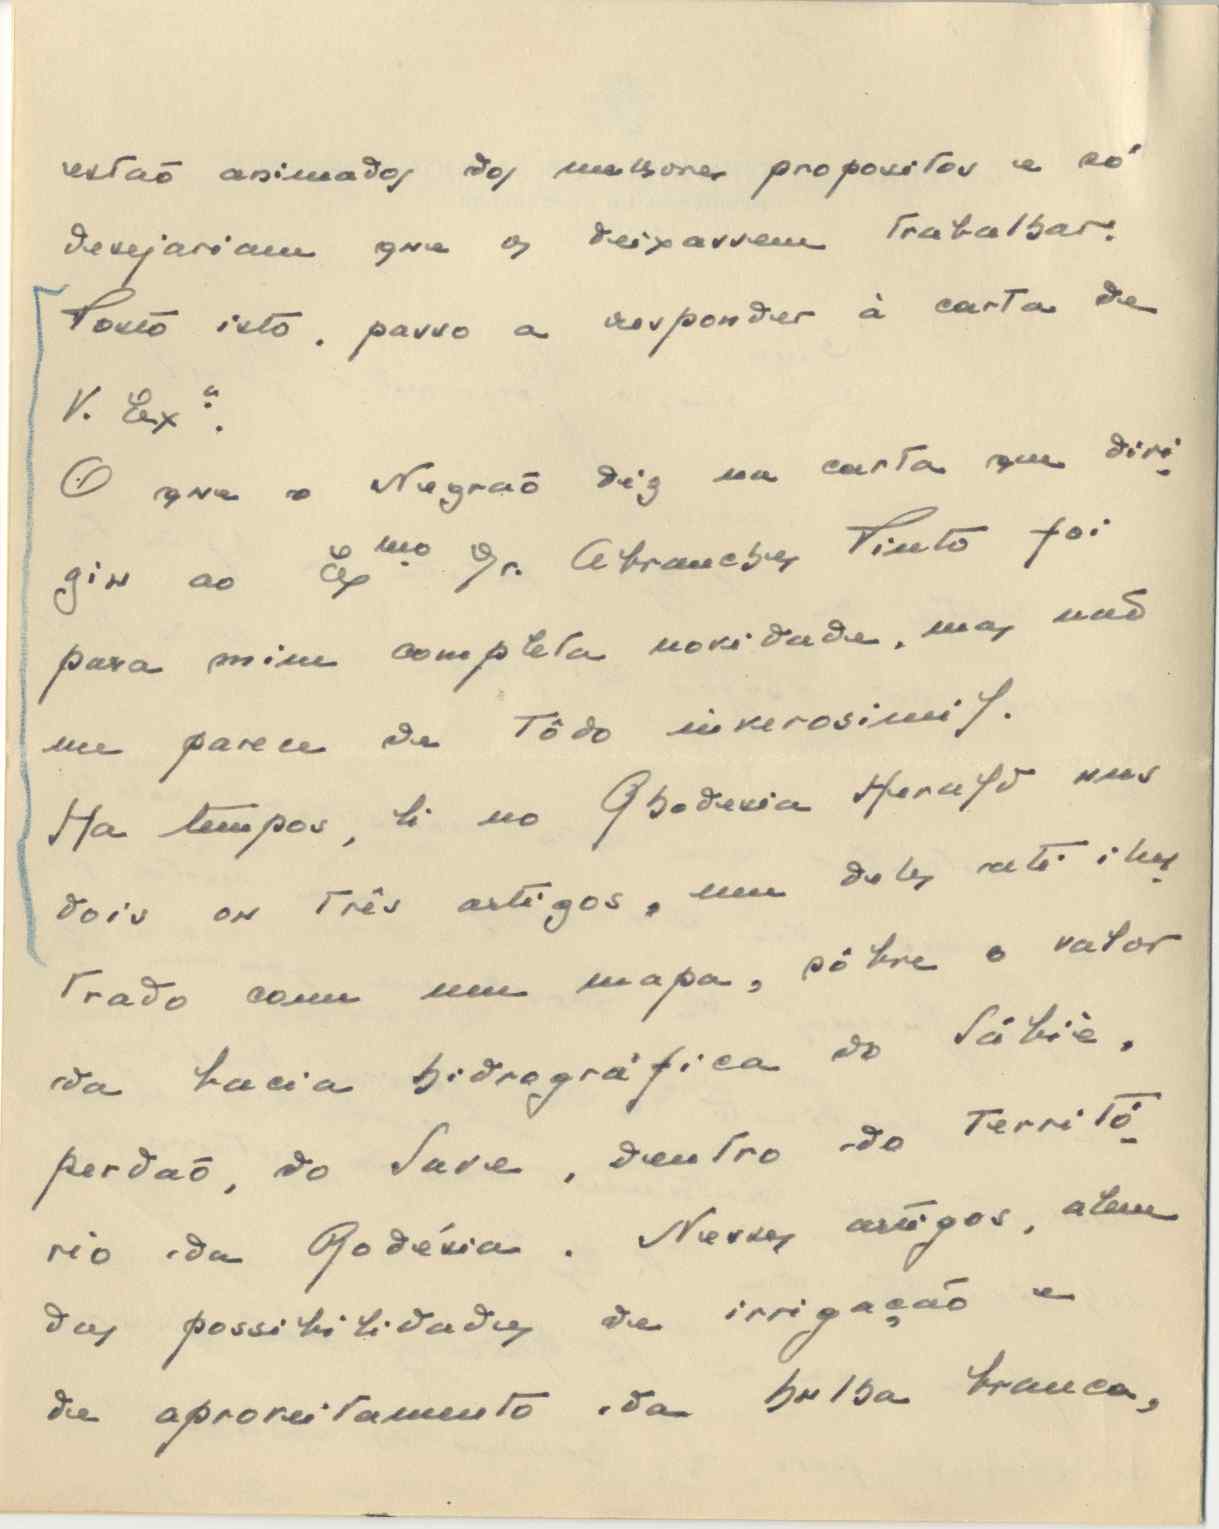 estão animados dos melhores propositos e só
desejariam que os deixassem trabalhar.
Posto isto, passo a responder à carta de
V. Exª.
O que o Negrão diz na carta que diri-
giu ao Exmo Dr. Abranches Pinto foi
para mim completa novidade, mas não
me parece de tôdo inverosimil.
Ha tempos, li no Rhodesia Herald uns
dois ou três artigos, um deles até ilus-
trado com um mapa, sôbre o valor
da bacia hidrográfica do Sábiè,
perdão, do Save, dentro do territó-
rio da Rodésia. Nesses artigos, alem
das possibilidades de irrigação e
de aproveitamento da hulha branca,